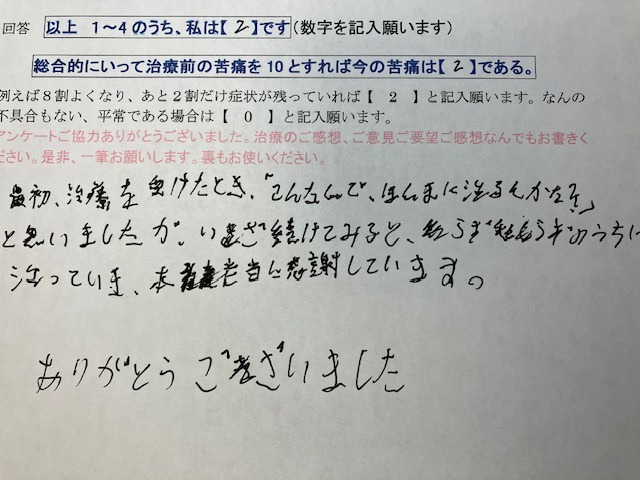 回答 以上 1~4のうち、私は【 2 】です(数字を記入願います)
総合的にいって治療前の苦痛を10とすれば今の苦痛は【 2 】である。
例えば8割よくなり、あと2割だけ症状が残っていれば【 2 】と記入願います。なんの
不具合もない、平常である場合は【 0 】と記入願います。
アンケートご協力ありがとうございました。治療のご感想、ご意見ご要望ご感想なんでもお書きく
ださい。是非、一筆お願いします。裏もお使いください。
最初、治療を受けたとき、「こんなんで、ほんまに治るんかな?」
と思いましたが、いざ続けてみると、知らず知らずのうちに
治っていき、本当に感謝しています。
ありがとうございました